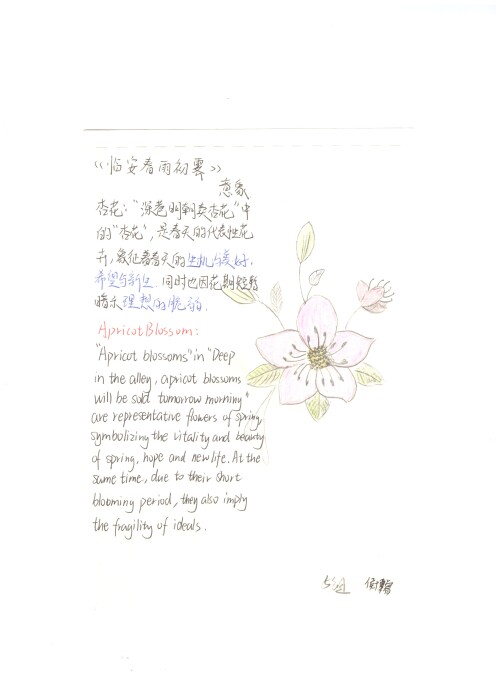 《临安春雨初霁》
意象
杏花:"深巷明朝卖杏花"中
的"杏花",是春天的代表性花
卉,象征着春天的生机与美好、
希望与新生.同时也因花期短暂
暗示理想的脆弱.
Apricot Blossom:
"Apricot blossoms" in "Deep
in the alley, apricot blossoms
will be sold tomorrow morning"
are representative flowers of spring,
symbolizing the vitality and beauty
of spring, hope and new life. At the
same time, due to their short
blooming period, they also imply
the fragility of ideals.
5组